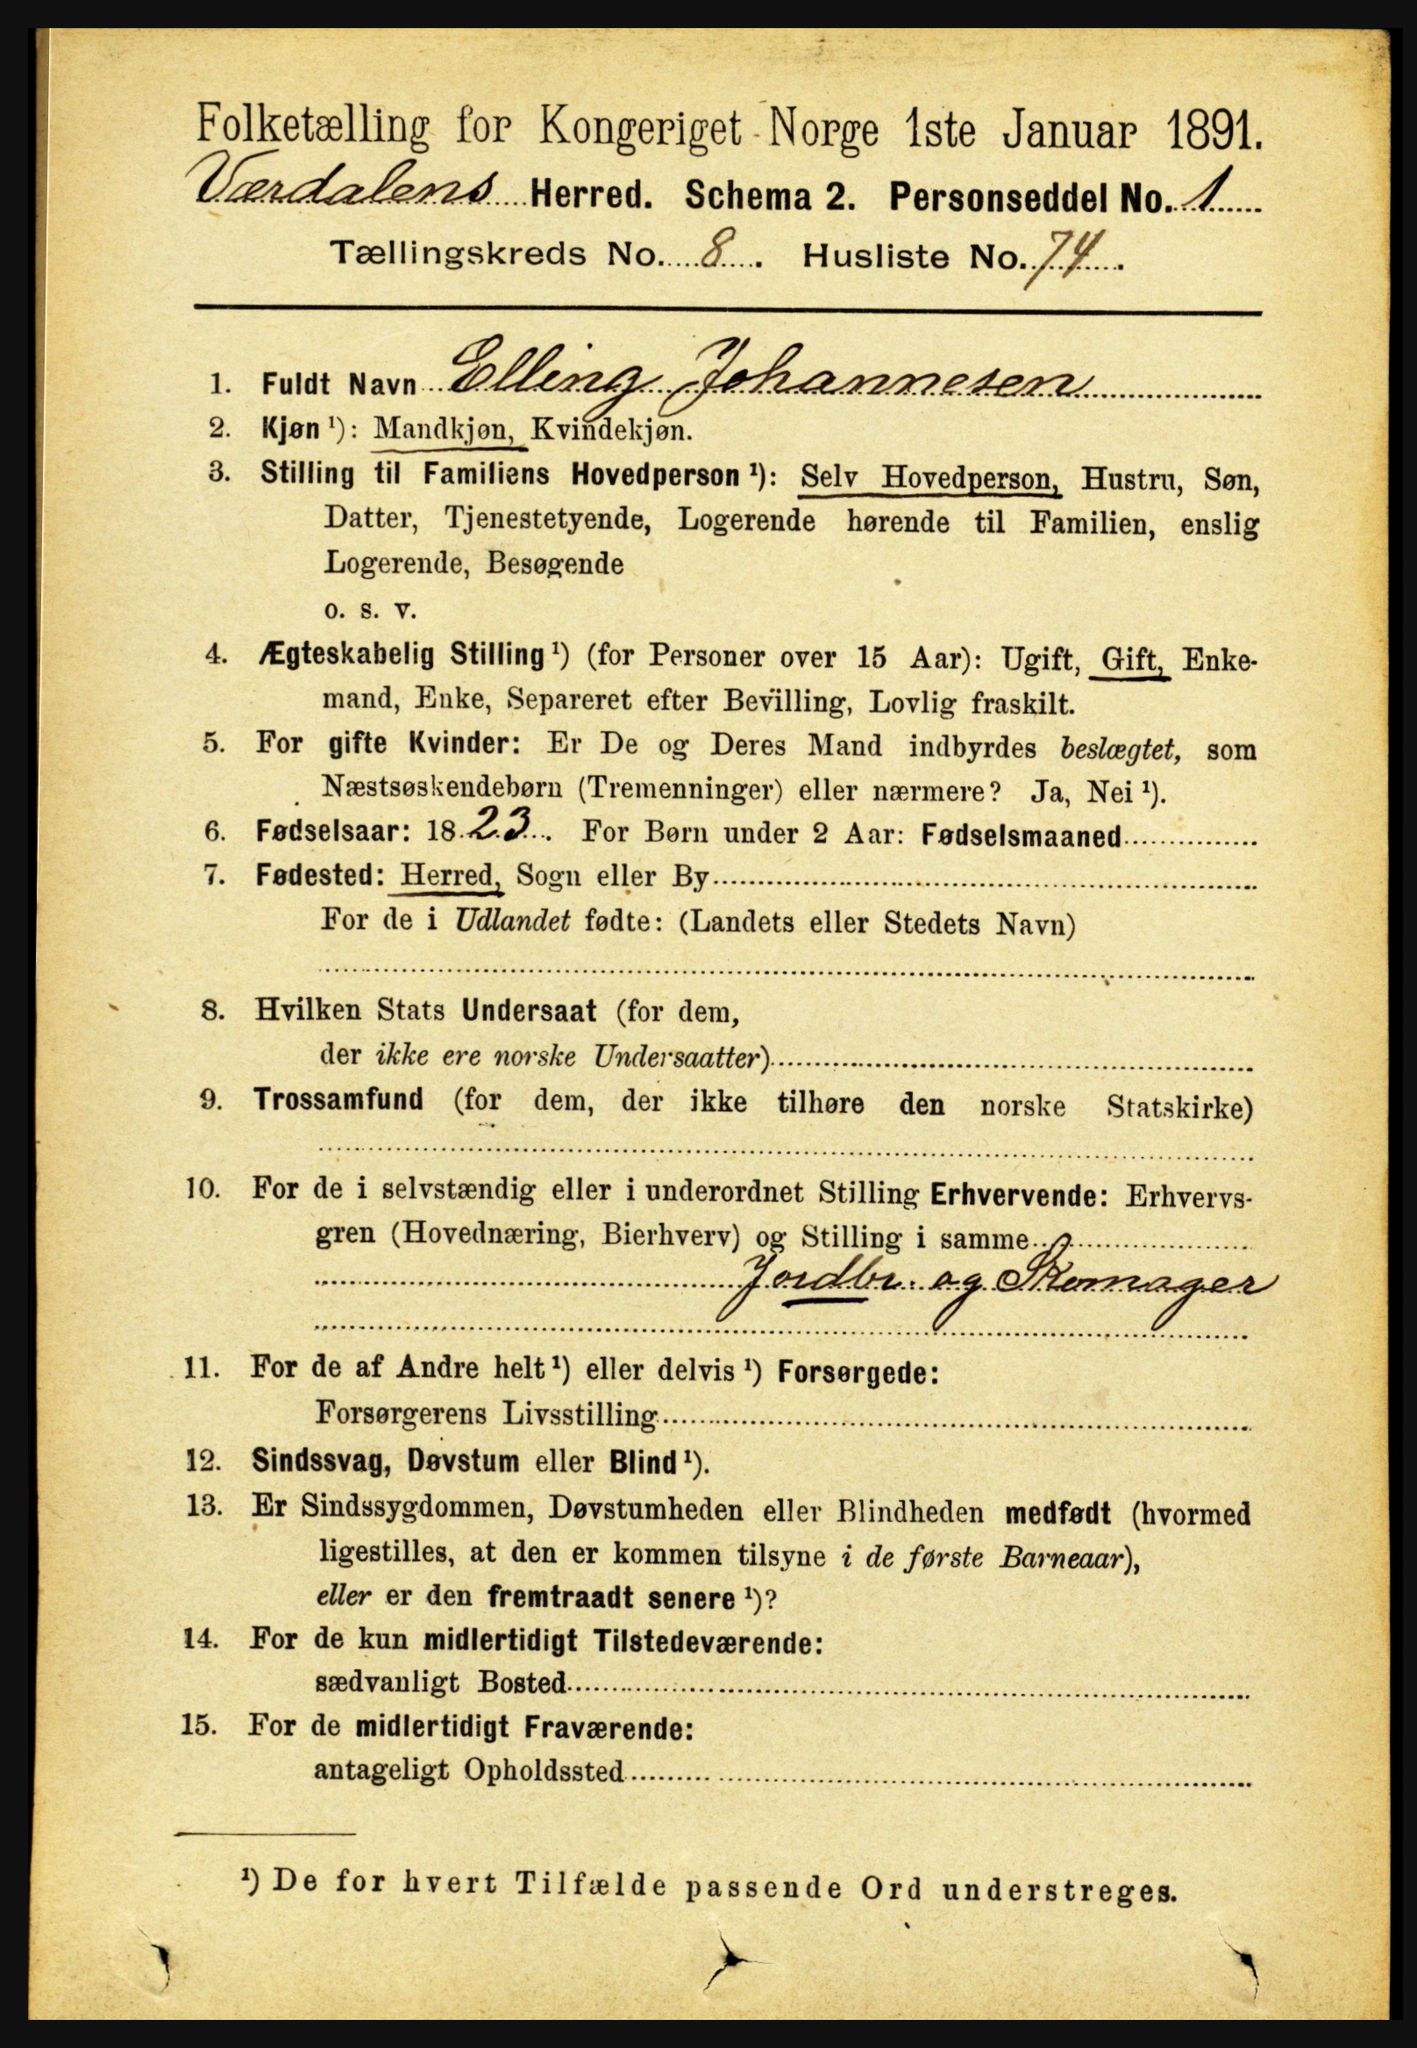 Folketælling for Kongeriget Norge 1ste Januar 1891.
Værdalens Herred. Schema 2. Personseddel No. 1
Tællingskreds No. 8. Husliste No. 74.
1. Fuldt Navn Elling Johannesen
2. Kjøn¹): Mandkjøn, Kvindekjøn.
3. Stilling til Familiens Hovedperson¹): Selv Hovedperson, Hustru, Søn,
Datter, Tjenestetyende, Logerende hørende til Familien, enslig
Logerende, Besøgende
o. s. v.
4. Ægteskabelig Stilling¹) (for Personer over 15 Aar): Ugift, Gift, Enke-
mand, Enke, Separeret efter Bevilling, Lovlig fraskilt.
5. For gifte Kvinder: Er De og Deres Mand indbyrdes beslægtet, som
Næstsøskendebørn (Tremenninger) eller nærmere? Ja, Nei¹).
6. Fødselsaar: 1823. For Børn under 2 Aar: Fødselsmaaned
7. Fødested: Herred, Sogn eller By
For de i Udlandet fødte: (Landets eller Stedets Navn)
8. Hvilken Stats Undersaat (for dem,
der ikke ere norske Undersaatter)
9. Trossamfund (for dem, der ikke tilhøre den norske Statskirke)
10. For de i selvstændig eller i underordnet Stilling Erhvervende: Erhvervs-
gren (Hovednæring, Bierhverv) og Stilling i samme
Jordbr. og Skomager
11. For de af Andre helt¹) eller delvis¹) Forsørgede:
Forsørgerens Livsstilling
12. Sindssvag, Døvstum eller Blind¹).
13. Er Sindssygdommen, Døvstumheden eller Blindheden medfødt (hvormed
ligestilles, at den er kommen tilsyne i de første Barneaar),
eller er den fremtraadt senere¹)?
14. For de kun midlertidigt Tilstedeværende:
sædvanligt Bosted
15. For de midlertidigt Fraværende:
antageligt Opholdssted
¹) De for hvert Tilfælde passende Ord understreges.